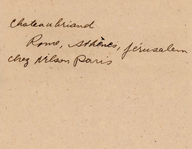 Chateaubriand
Rome, Athènes, Jérusalem
chez Nelson Paris